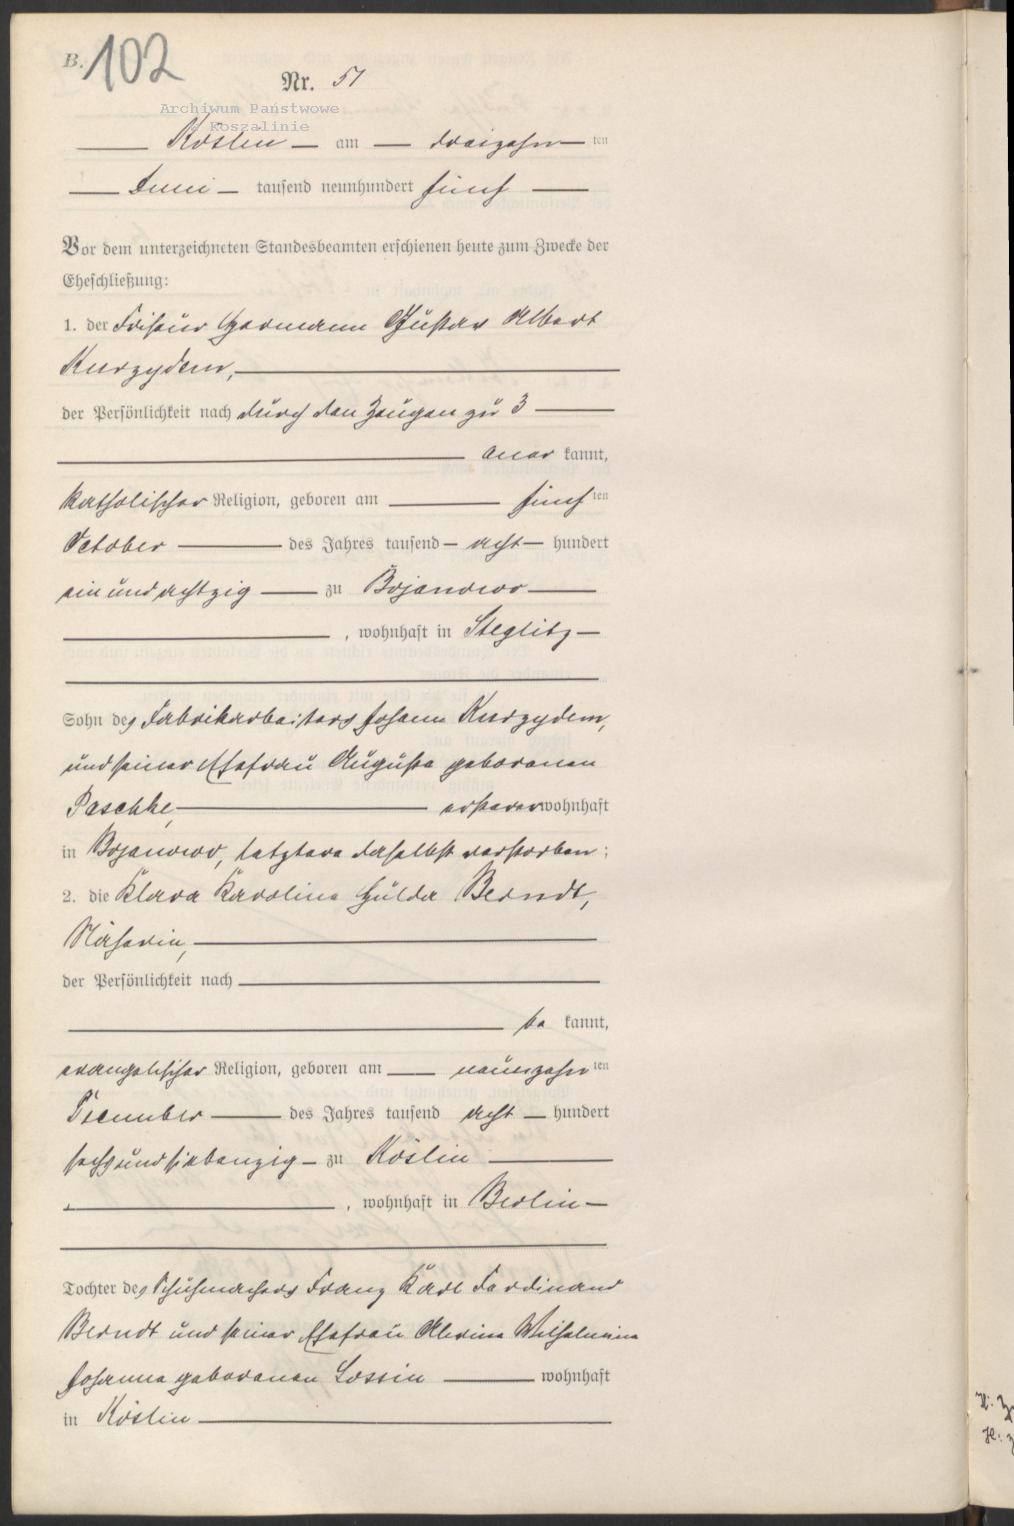 B. 102
Nr. 51
Archiwum Państwowe
w Koszalinie
Köslin am dreizehnten
Juni tausend neunhundert fünf
Vor dem unterzeichneten Standesbeamten erschienen heute zum Zwecke der
Eheschließung:
1. der Friseur Hermann Gustav Albert
Kurzydem,
der Persönlichkeit nach durch den Zeugen zu 3
aner kannt,
katholischer Religion, geboren am fünften
October des Jahres tausend acht hundert
ein und achtzig zu Bojanowo
, wohnhaft in Steglitz
Sohn des Fabrikarbeiters Johann Kurzydem,
und seiner Ehefrau Auguste geborenen
Paschke, ersterer wohnhaft
in Bojanowo, letztere daselbst verstorben;
2. die Klara Karoline Hulda Berndt,
Näherin,
der Persönlichkeit nach
be kannt,
evangelischer Religion, geboren am neunzehnten
December des Jahres tausend acht hundert
sechsundsiebenzig zu Köslin
, wohnhaft in Berlin
Tochter des Schuhmachers Franz Karl Ferdinand
Berndt und seiner Ehefrau Alwine Wilhelmine
Johanna geborenen Lossin wohnhaft
in Köslin